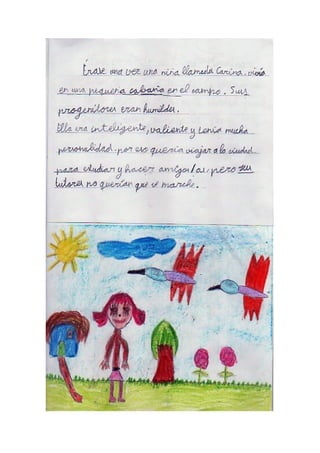 Érase una vez una niña llamada Carina, vivía
en una pequeña cabaña en el campo. Sus
progenitores eran humildes.
Ella era inteligente, valiente y tenía mucha
personalidad, por eso quería viajar a la ciudad
para estudiar y hacer amigos/as, pero sus
tutores no querían que se marche.